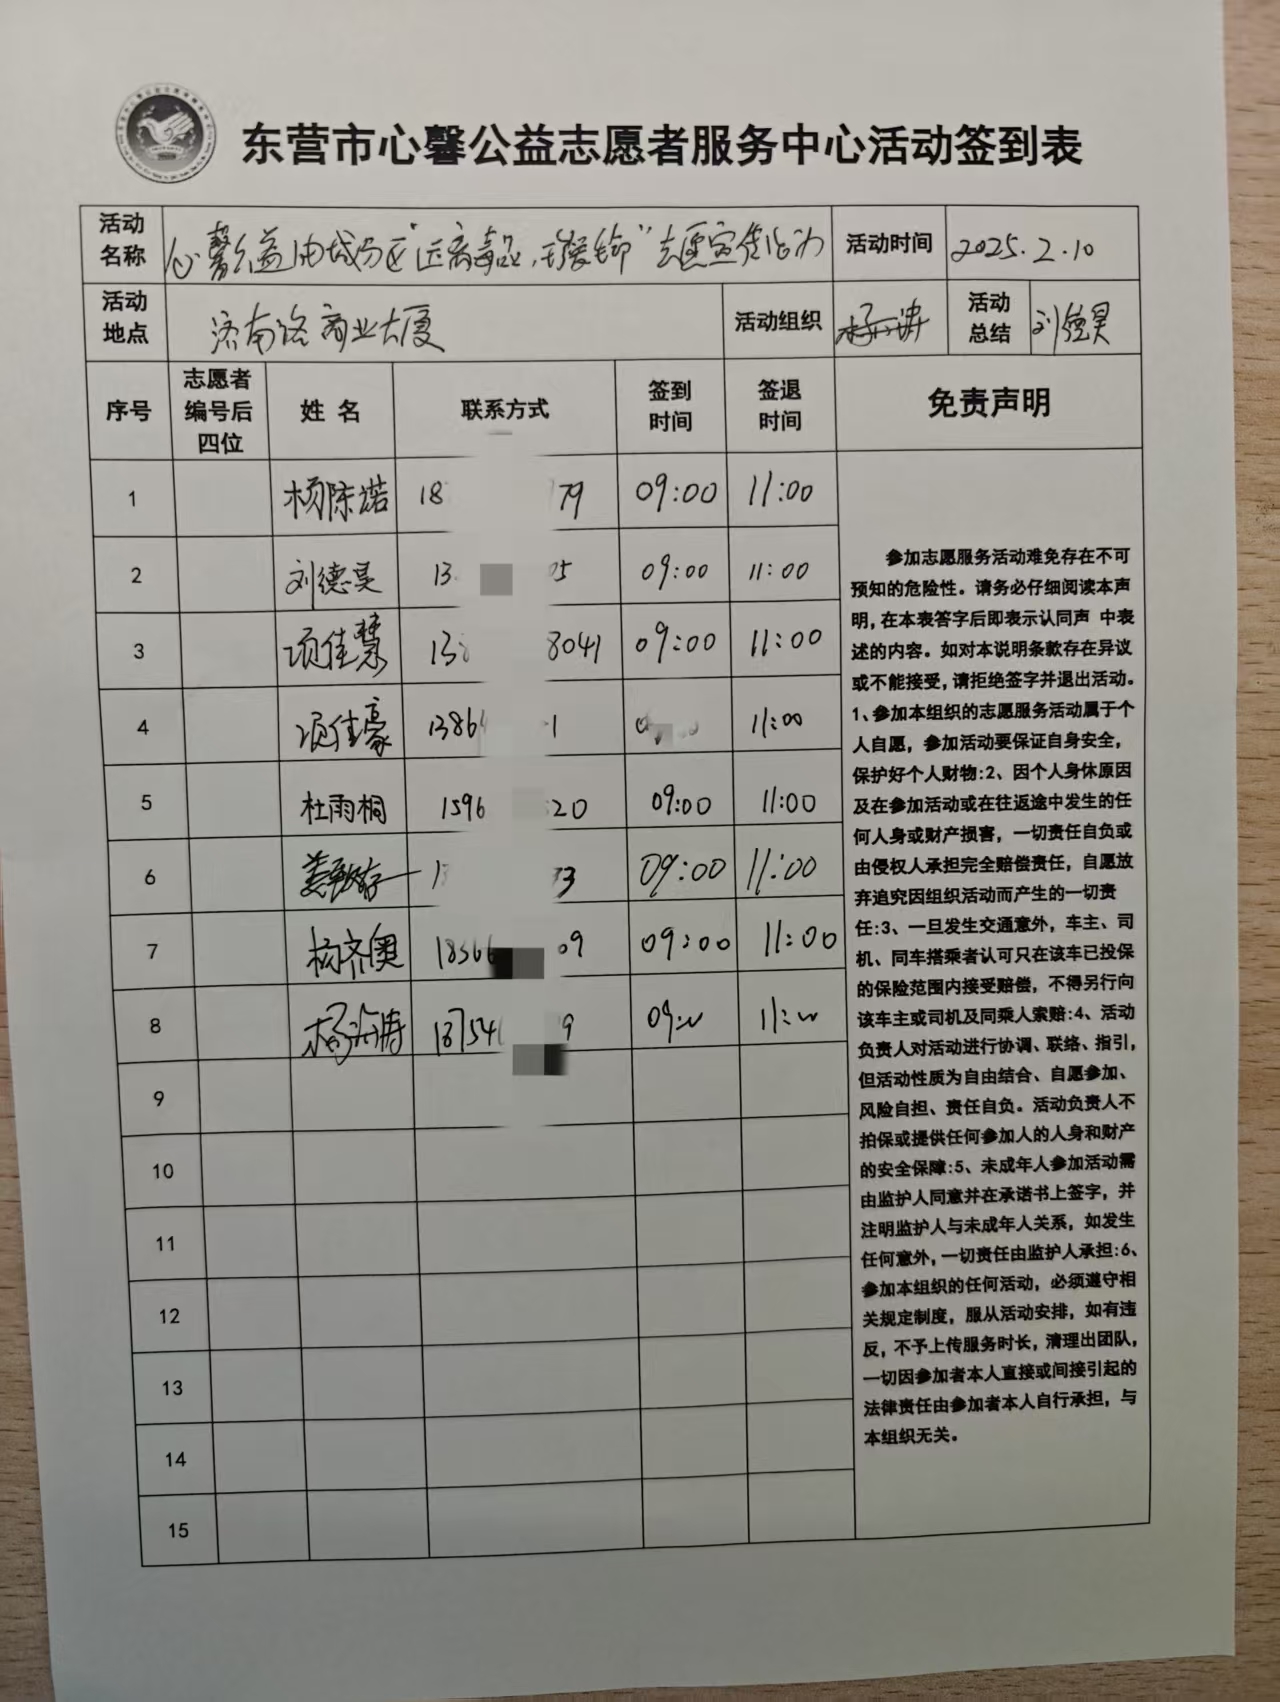 东营市心馨公益志愿者服务中心活动签到表
活动名称 心馨公益 "远离毒品 志愿宣传活动 活动时间 2025.2.10
活动地点 济南路商业大厦 活动组织 活动总结 刘德昊
序号 志愿者编号后四位 姓名 联系方式 签到时间 签退时间 免责声明
1 杨陈诺 18 79 09:00 11:00
2 刘德昊 13 05 09:00 11:00
3 项佳慧 138 8041 09:00 11:00
4 项佳豪 1386 1 11:00
5 杜雨桐 1596 20 09:00 11:00
6 13 3 09:00 11:00
7 杨齐奥 18366 09 09:00 11:00
8 杨海涛 18754 9 09:00 11:00
9
10
11
12
13
14
15
参加志愿服务活动难免存在不可
预知的危险性。请务必仔细阅读本声
明,在本表签字后即表示认同声 中表
述的内容。如对本说明条款存在异议
或不能接受,请拒绝签字并退出活动。
1、参加本组织的志愿服务活动属于个
人自愿，参加活动要保证自身安全，
保护好个人财物:2、因个人身休原因
及在参加活动或在往返途中发生的任
何人身或财产损害，一切责任自负或
由侵权人承担完全赔偿责任，自愿放
弃追究因组织活动而产生的一切责
任:3、一旦发生交通意外，车主、司
机、同车搭乘者认可只在该车已投保
的保险范围内接受赔偿，不得另行向
该车主或司机及同乘人索赔:4、活动
负责人对活动进行协调、联络、指引，
但活动性质为自由结合、自愿参加、
风险自担、责任自负。活动负责人不
拍保或提供任何参加人的人身和财产
的安全保障:5、未成年人参加活动需
由监护人同意并在承诺书上签字，并
注明监护人与未成年人关系，如发生
任何意外,一切责任由监护人承担:6、
参加本组织的任何活动，必须遵守相
关规定制度，服从活动安排，如有违
反，不予上传服务时长，清理出团队，
一切因参加者本人直接或间接引起的
法律责任由参加者本人自行承担，与
本组织无关。